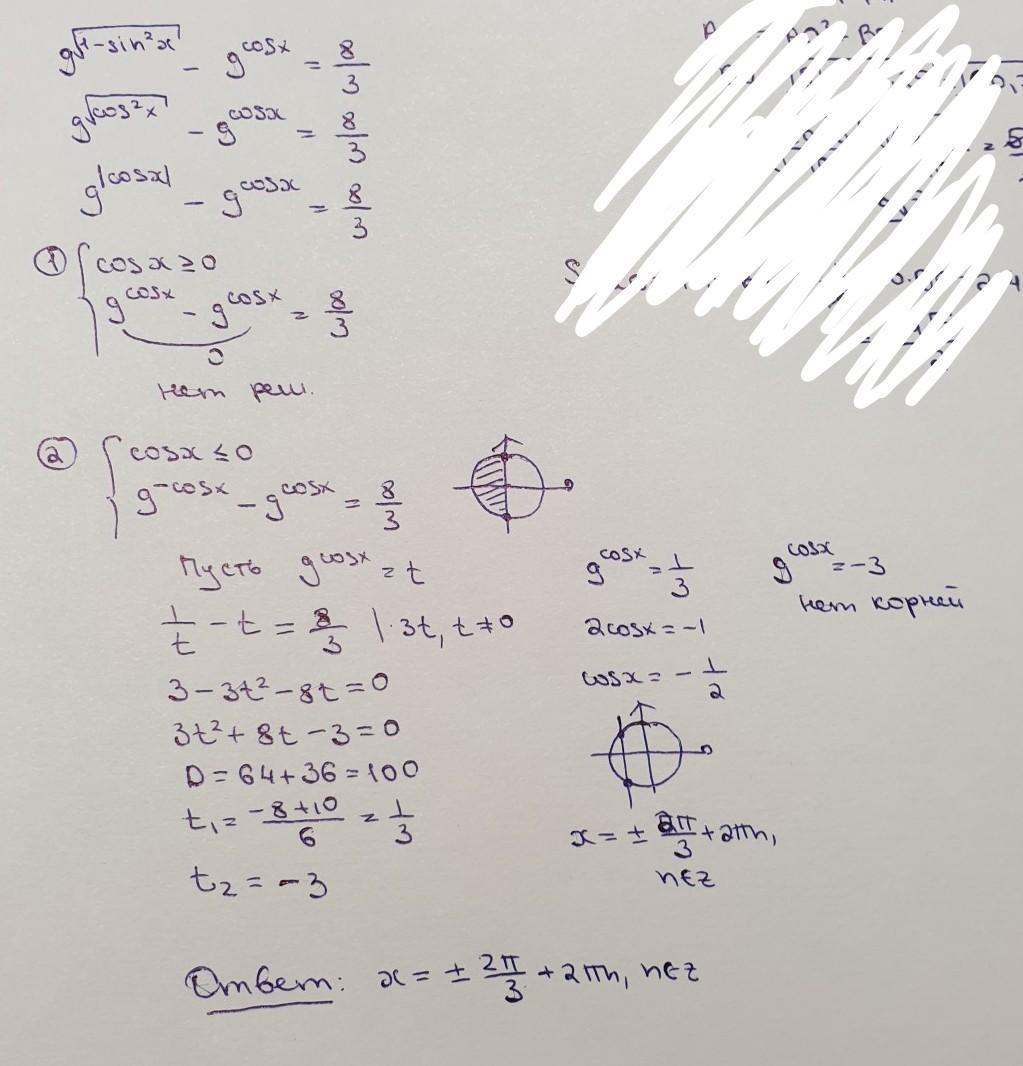 9^√(1-sin²x) - 9^cosx = 8/3
9^√(cos²x) - 9^cosx = 8/3
9^|cosx| - 9^cosx = 8/3
① { cosx ≥ 0
9^cosx - 9^cosx = 8/3
0
нет реш.
② { cosx ≤ 0
9^-cosx - 9^cosx = 8/3
Пусть 9^cosx = t
1/t - t = 8/3 | · 3t, t ≠ 0
3 - 3t² - 8t = 0
3t² + 8t - 3 = 0
D = 64 + 36 = 100
t₁ = (-8+10)/6 = 1/3
t₂ = -3
9^cosx = 1/3
2cosx = -1
cosx = - 1/2
x = ± 2π/3 + 2πn,
n∈z
9^cosx = -3
нет корней
Ответ: x = ± 2π/3 + 2πn, n∈z